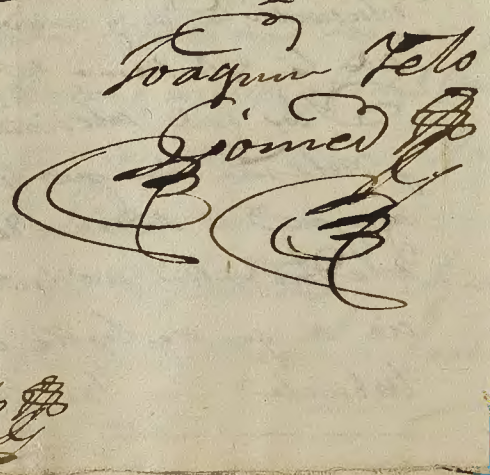 Joaquin Velo
Gomez